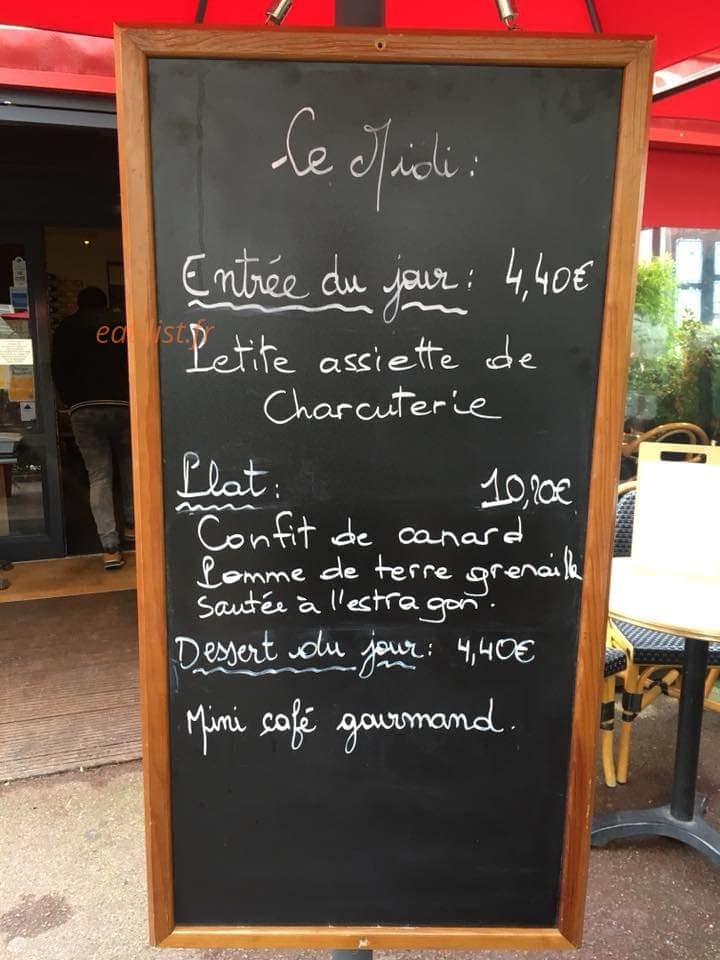 Ce Midi :
Entrée du jour : 4,40€
Petite assiette de
Charcuterie
Plat : 10,20€
Confit de canard
Pomme de terre grenaille
sautée à l'estragon.
Dessert du jour : 4,40€
Mini café gourmand.